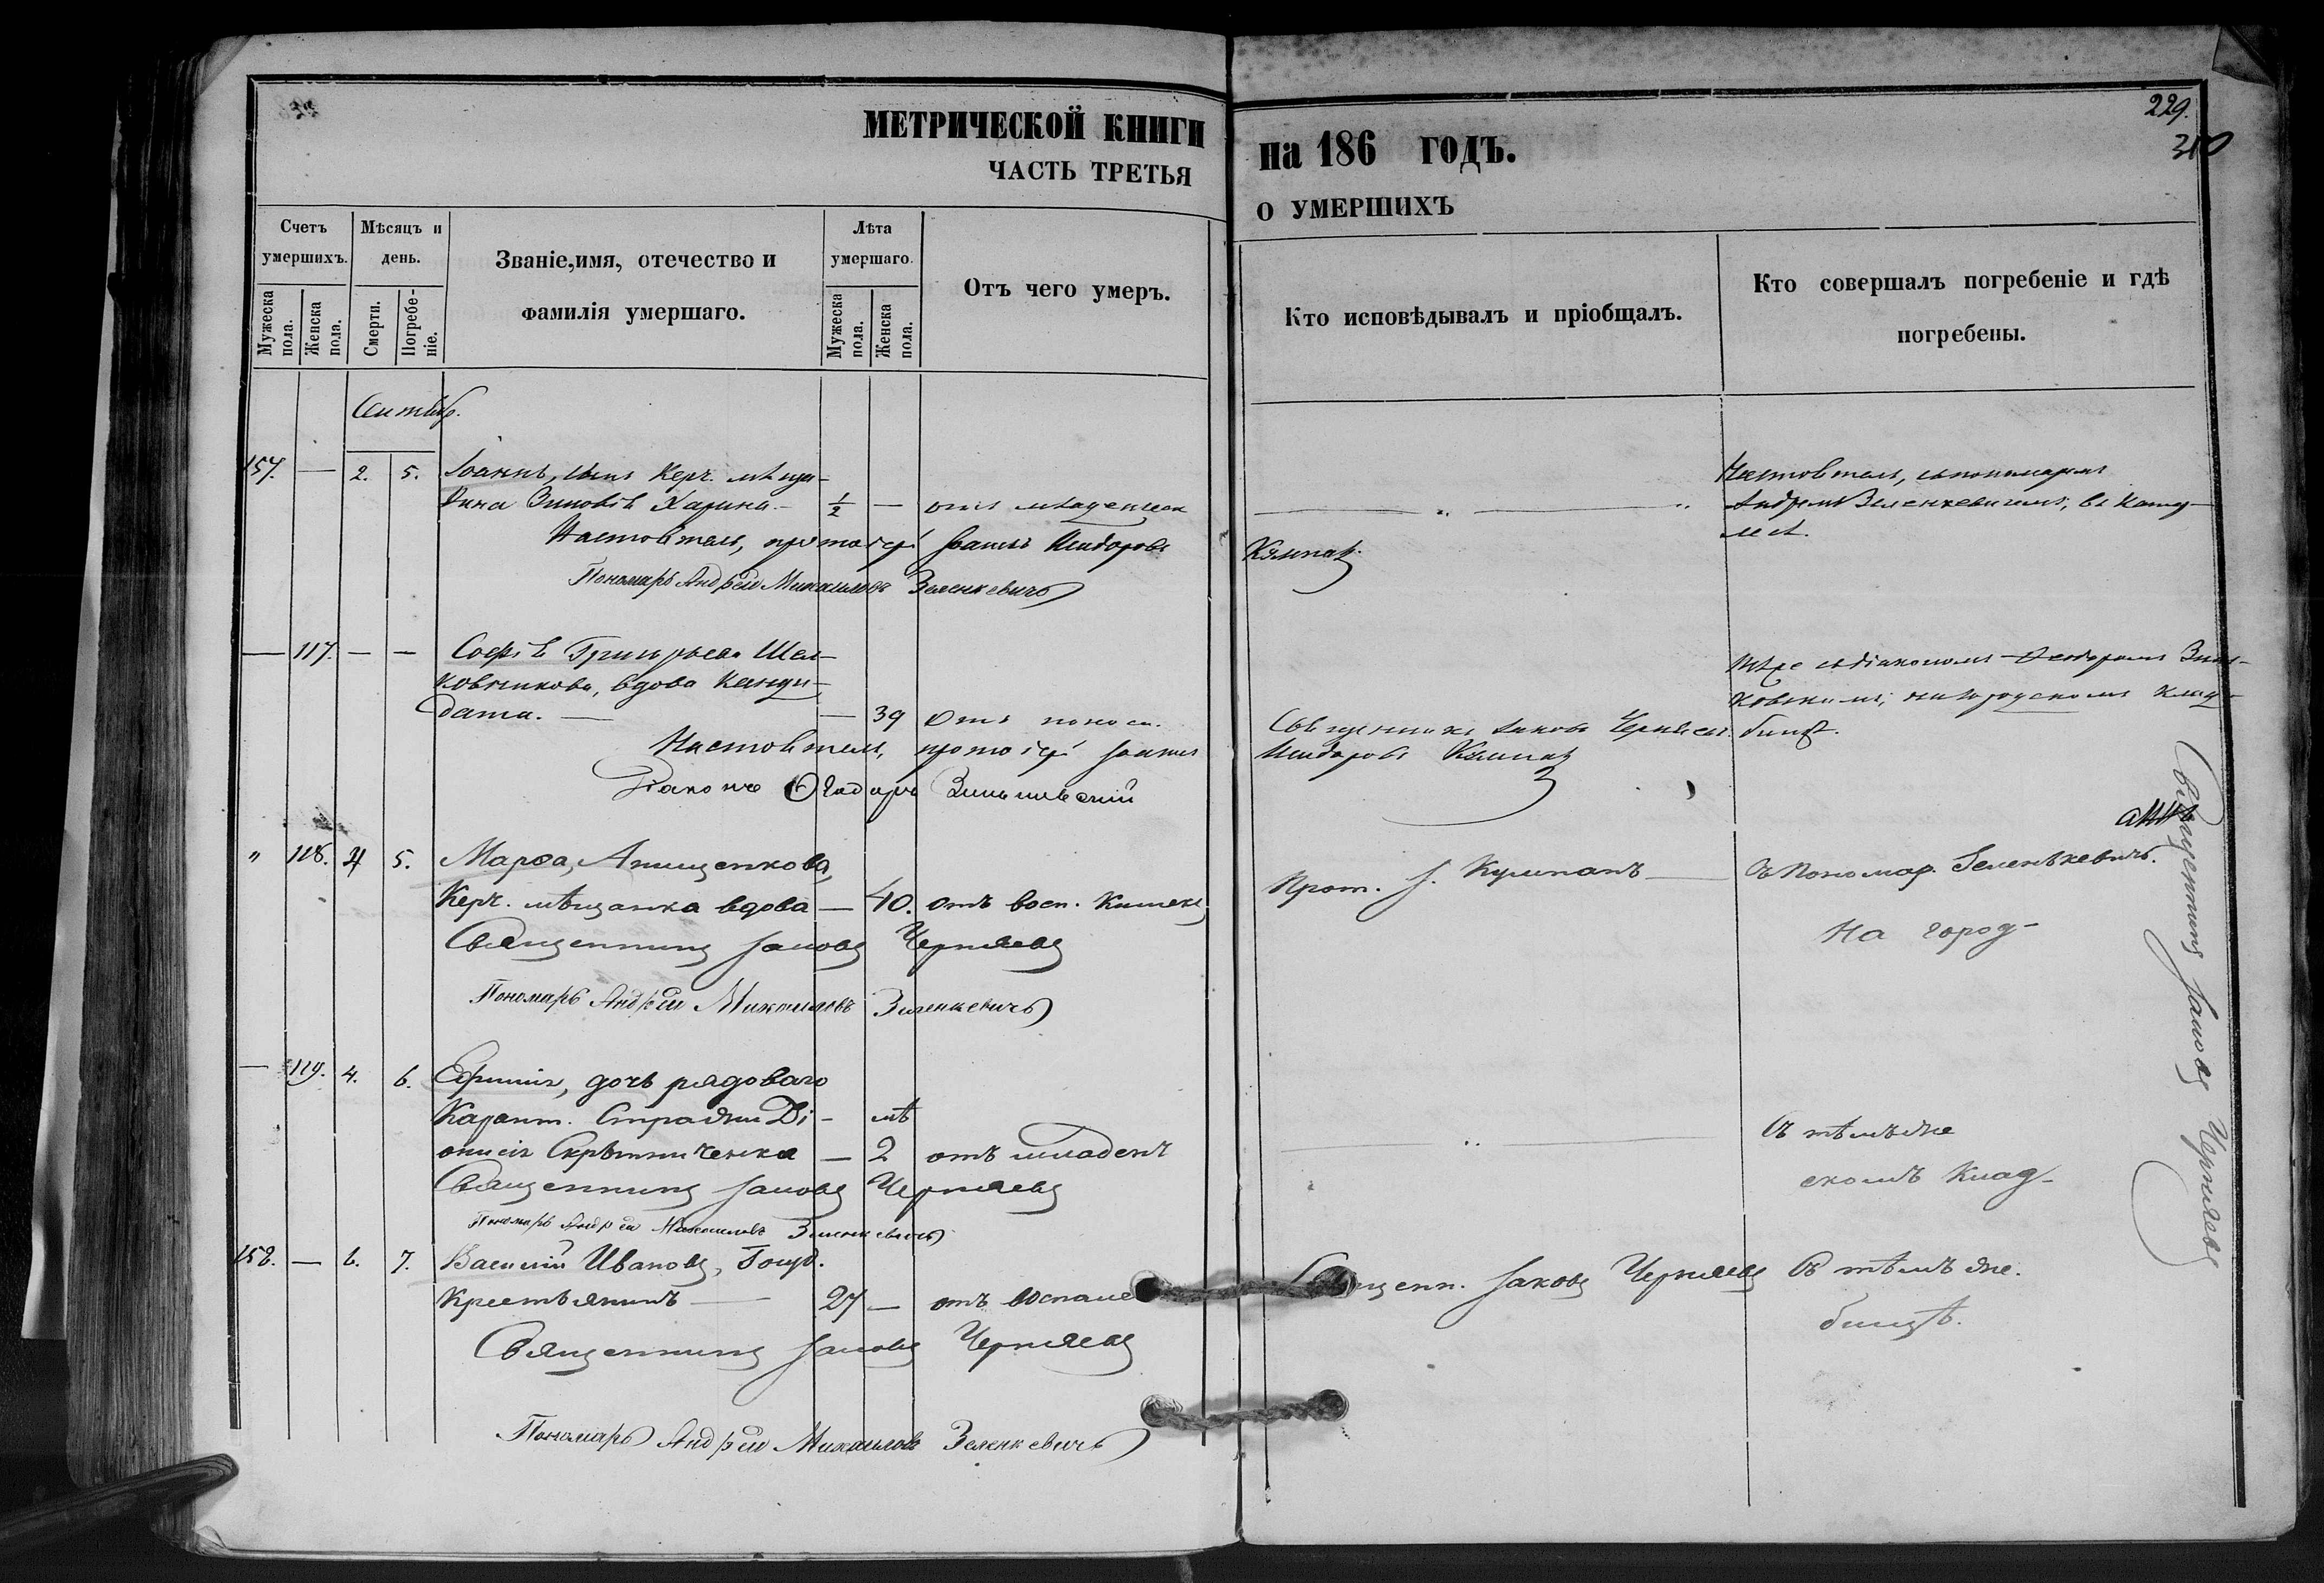 229.
310
МЕТРИЧЕСКОЙ КНИГИ на 186 ГОДЪ.
ЧАСТЬ ТРЕТЬЯ О УМЕРШИХЪ
Счетъ умершихъ.
Мужеска пола.
Женска пола.
Мѣсяцъ и день.
Смерти.
Погребеніе.
Званіе, имя, отечество и фамилія умершаго.
Лѣта умершаго.
Мужеска пола.
Женска пола.
Отъ чего умеръ.
Кто исповѣдывалъ и пріобщалъ.
Кто совершалъ погребеніе и гдѣ погребены.
157. — 2. 5. Іоаннъ, сынъ Керч. мѣща-
нина Зиновія Харина — 1/2 — отъ младенческ
Настоятель, протоіерей Іоаннъ Исидоровъ Кумпан
Пономарь Андрей Михаиловъ Зеленкевичъ
Настоятель, съ пономаремъ
Андреемъ Зеленкевичемъ, въ
— 117. — — Софія Григорьева Шел-
ковникова, вдова Канди-
дата. — — 39 Отъ поноса.
Настоятель, протоіерей Іоаннъ Исидоровъ Кумпан
Діаконъ Ѳеодоръ
Священникъ Іаковъ Черняевъ.
тѣже съ діакономъ Ѳеодоромъ
на городскомъ клад-
бищѣ.
" 118. 4 5. Марѳа Анищенкова,
Керч. мѣщанка вдова — 40. отъ восп. кишекъ
Священникъ Іаковъ Черняевъ
Пономарь Андрей Михаиловъ Зеленкевичъ
Прот. І. Кумпанъ —
съ Пономар. Зеленкевичъ.
На город-
— 119. 4. 6. Ефимія, дочь рядоваго
Карант. Стражи Ді- мѣ
онисія — 2 отъ младенч
Священникъ Іаковъ Черняевъ
Пономарь Андрей Михаиловъ Зеленкевичъ
Съ тѣмъ же
скомъ Клад-
158. — 6. 7. Василій Ивановъ, Госуд.
Крестьянинъ — 27 — отъ воспале
Священникъ Іаковъ Черняевъ
Пономарь Андрей Михаиловъ Зеленкевичъ
Іаковъ Черняевъ
Съ тѣмъ же.
бищѣ.
Священникъ Іаковъ Черняевъ